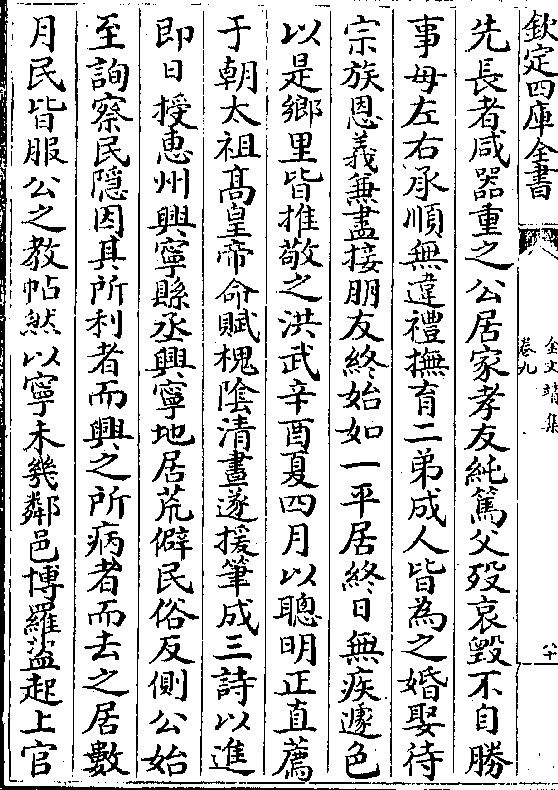 欽定四庫全書
金文靖集
卷九
六十
先長者咸器重之公居家孝友純篤父歿哀毀不自勝
事母左右承順無違禮撫育二弟成人皆為之婚娶待
宗族恩義兼盡接朋友終始如一平居終日無疾遽色
以是鄉里皆推敬之洪武辛酉夏四月以聰明正直薦
于朝太祖髙皇帝命賦槐陰清晝遂援筆成三詩以進
即日授惠州興寧縣丞興寧地居荒僻民俗反側公始
至詢察民隠因其所利者而興之所病者而去之居數
月民皆服公之教帖然以寧未幾鄰邑博羅盜起上官